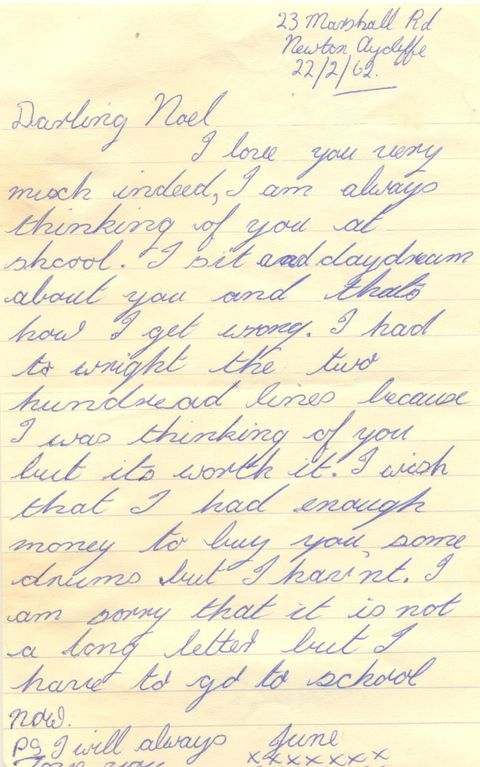 23 Marshall Rd
Newton Aycliffe
22/2/62.
Darling Noel
I love you very
much indeed, I am always
thinking of you at
shcool. I sit and daydream
about you and thats
how I get wrong. I had
to wright the two
hundread lines because
I was thinking of you
but its worth it. I wish
that I had enough
money to buy you some
drums but I hav'nt. I
am sorry that it is not
a long letter but I
have to go to school
now.
PS I will always June
love you xxxxxxx